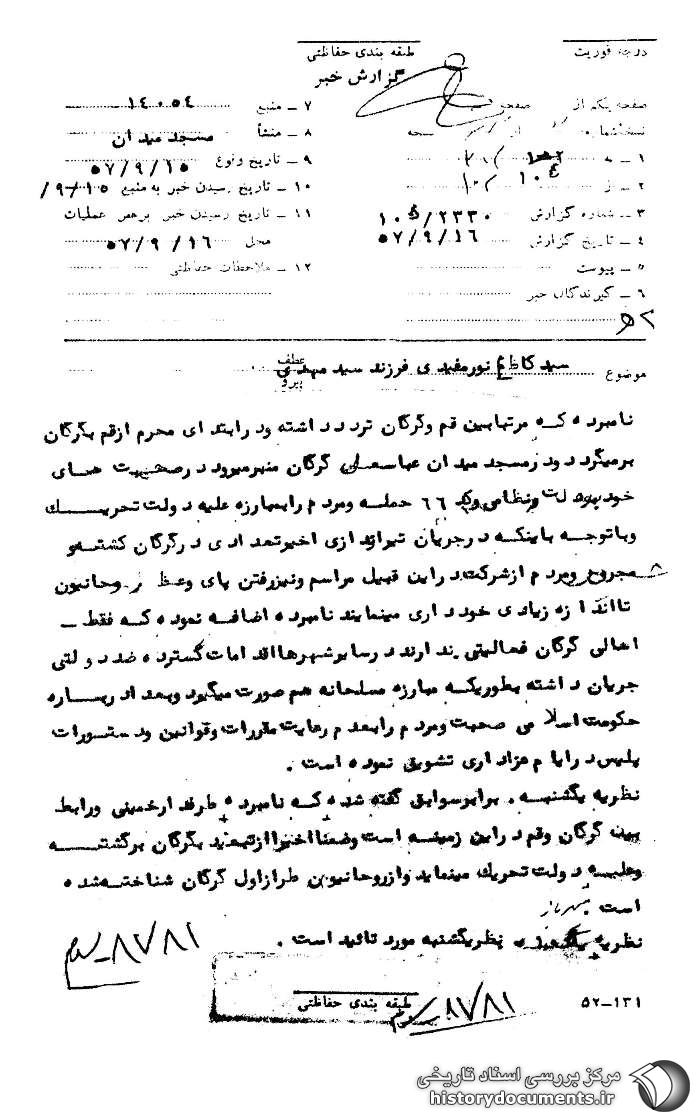 درجه فوریت
طبقه بندی حفاظتی
گزارش خبر
صفحه یکم از صفحه
نسخه شماره از نسخه
۱ ـ به
۲ ـ از ۱۰ ه‍
۳ ـ شماره گزارش ۲۳۳۰/ ۱۰ ه‍
۴ ـ تاریخ گزارش ۵۷/۹/۱۶
۵ ـ پیوست
۶ ـ گیرندگان خبر
۷ ـ منبع ۱۴۰۵۴
۸ ـ منشأ مسجد میدان
۹ ـ تاریخ وقوع ۵۷/۹/۱۵
۱۰ ـ تاریخ رسیدن خبر به منبع ۹/۱۵/
۱۱ ـ تاریخ رسیدن خبر برهبر عملیات
محلی ۵۷/۹/۱۶
۱۲ ـ ملاحظات حفاظتی
موضوع سید کاظم نورمفیدی فرزند سید مهدی
عطف
پیرو
نامبرده که مرتبا بین قم وگرگان تردد داشته ودرابتدای محرم ازقم بگرگان
برمیگردد ودرمسجد میدان عباسعلی گرگان منبرمیرود درصحبت های
خود بدولت ونظامی وکد ۶۶ حمله ومردم رابمبارزه علیه دولت تحریک
وباتوجه باینکه درجریان تیراندازی اخیرتعدادی درگرگان کشته و
مجروح ومردم ازشرکت دراین قبیل مراسم ونیزرفتن پای وعظ روحانیون
تااندازه زیادی خودداری مینمایند نامبرده اضافه نموده که فقط ـ
اهالی گرگان فعالیتی ندارند درسایرشهرهااقدامات گسترده ضددولتی
جریان داشته بطوریکه مبارزه مسلحانه هم صورت میگیرد وبعد درباره
حکومت اسلامی صحبت ومردم رابعدم رعایت مقررات وقوانین ودستورات
پلیس درایام عزاداری تشویق نموده است .
نظریه یکشنبه . برابرسوابق گفته شده که نامبرده طرفدارخمینی ورابط
بین گرگان وقم دراین زمینه است وضمنااخیراازتبعید بگرگان برگشته
وعلیه دولت تحریک مینماید وازروحانیون طرازاول گرگان شناخته شده
است
نظریه نظریکشنبه مورد تائید است .
۸۷۸۱
طبقه بندی حفاظتی
۸۷۸۱
۵۲-۱۳۱
مرکز بررسی اسناد تاریخی
historydocuments.ir